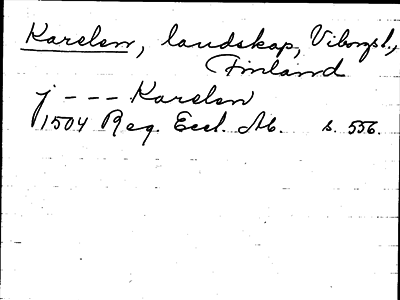 Karelen, landskap, Viborgsl.,
Finland
j --- Karelen
1504 Reg. Eccl. Ab. s. 556.